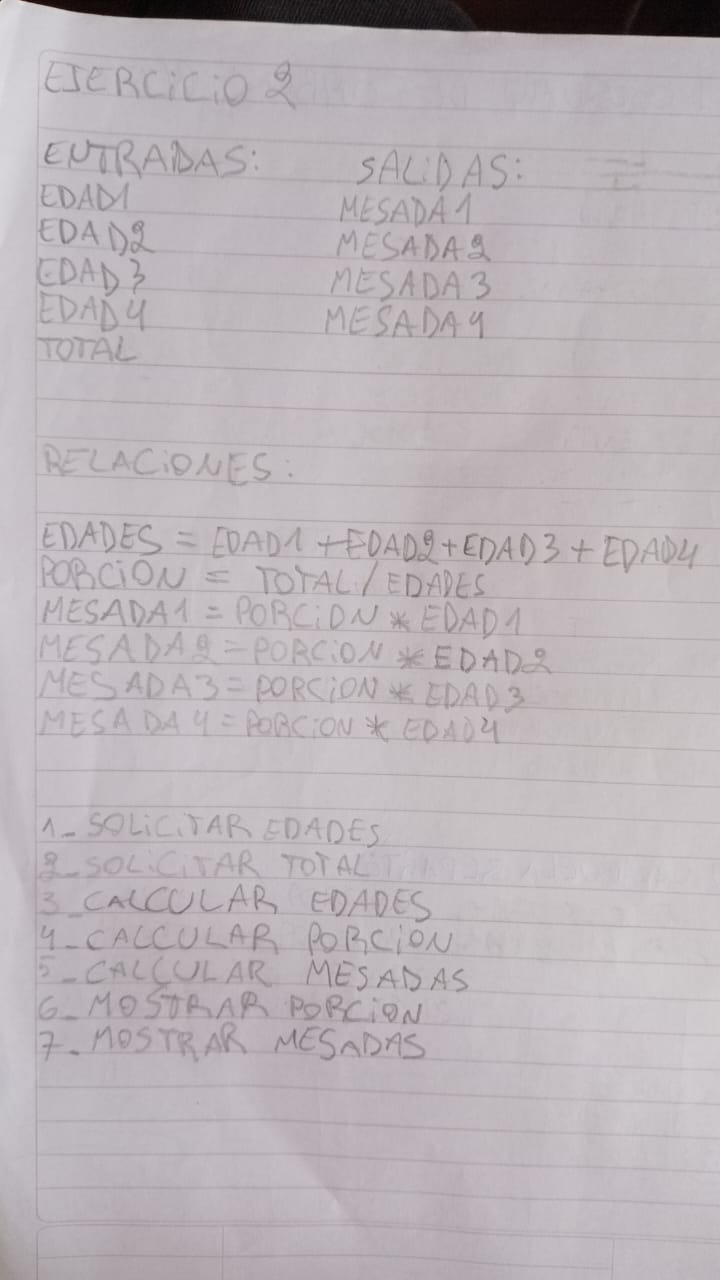 EJERCICIO 2
ENTRADAS: SALIDAS:
EDAD1 MESADA1
EDAD2 MESADA2
EDAD3 MESADA3
EDAD4 MESADA4
TOTAL
RELACIONES:
EDADES = EDAD1 + EDAD2 + EDAD3 + EDAD4
PORCION = TOTAL / EDADES
MESADA1 = PORCION * EDAD1
MESADA2 = PORCION * EDAD2
MESADA3 = PORCION * EDAD3
MESADA4 = PORCION * EDAD4
1_ SOLICITAR EDADES
2_ SOLICITAR TOTAL
3_ CALCULAR EDADES
4_ CALCULAR PORCION
5_ CALCULAR MESADAS
6_ MOSTRAR PORCION
7_ MOSTRAR MESADAS